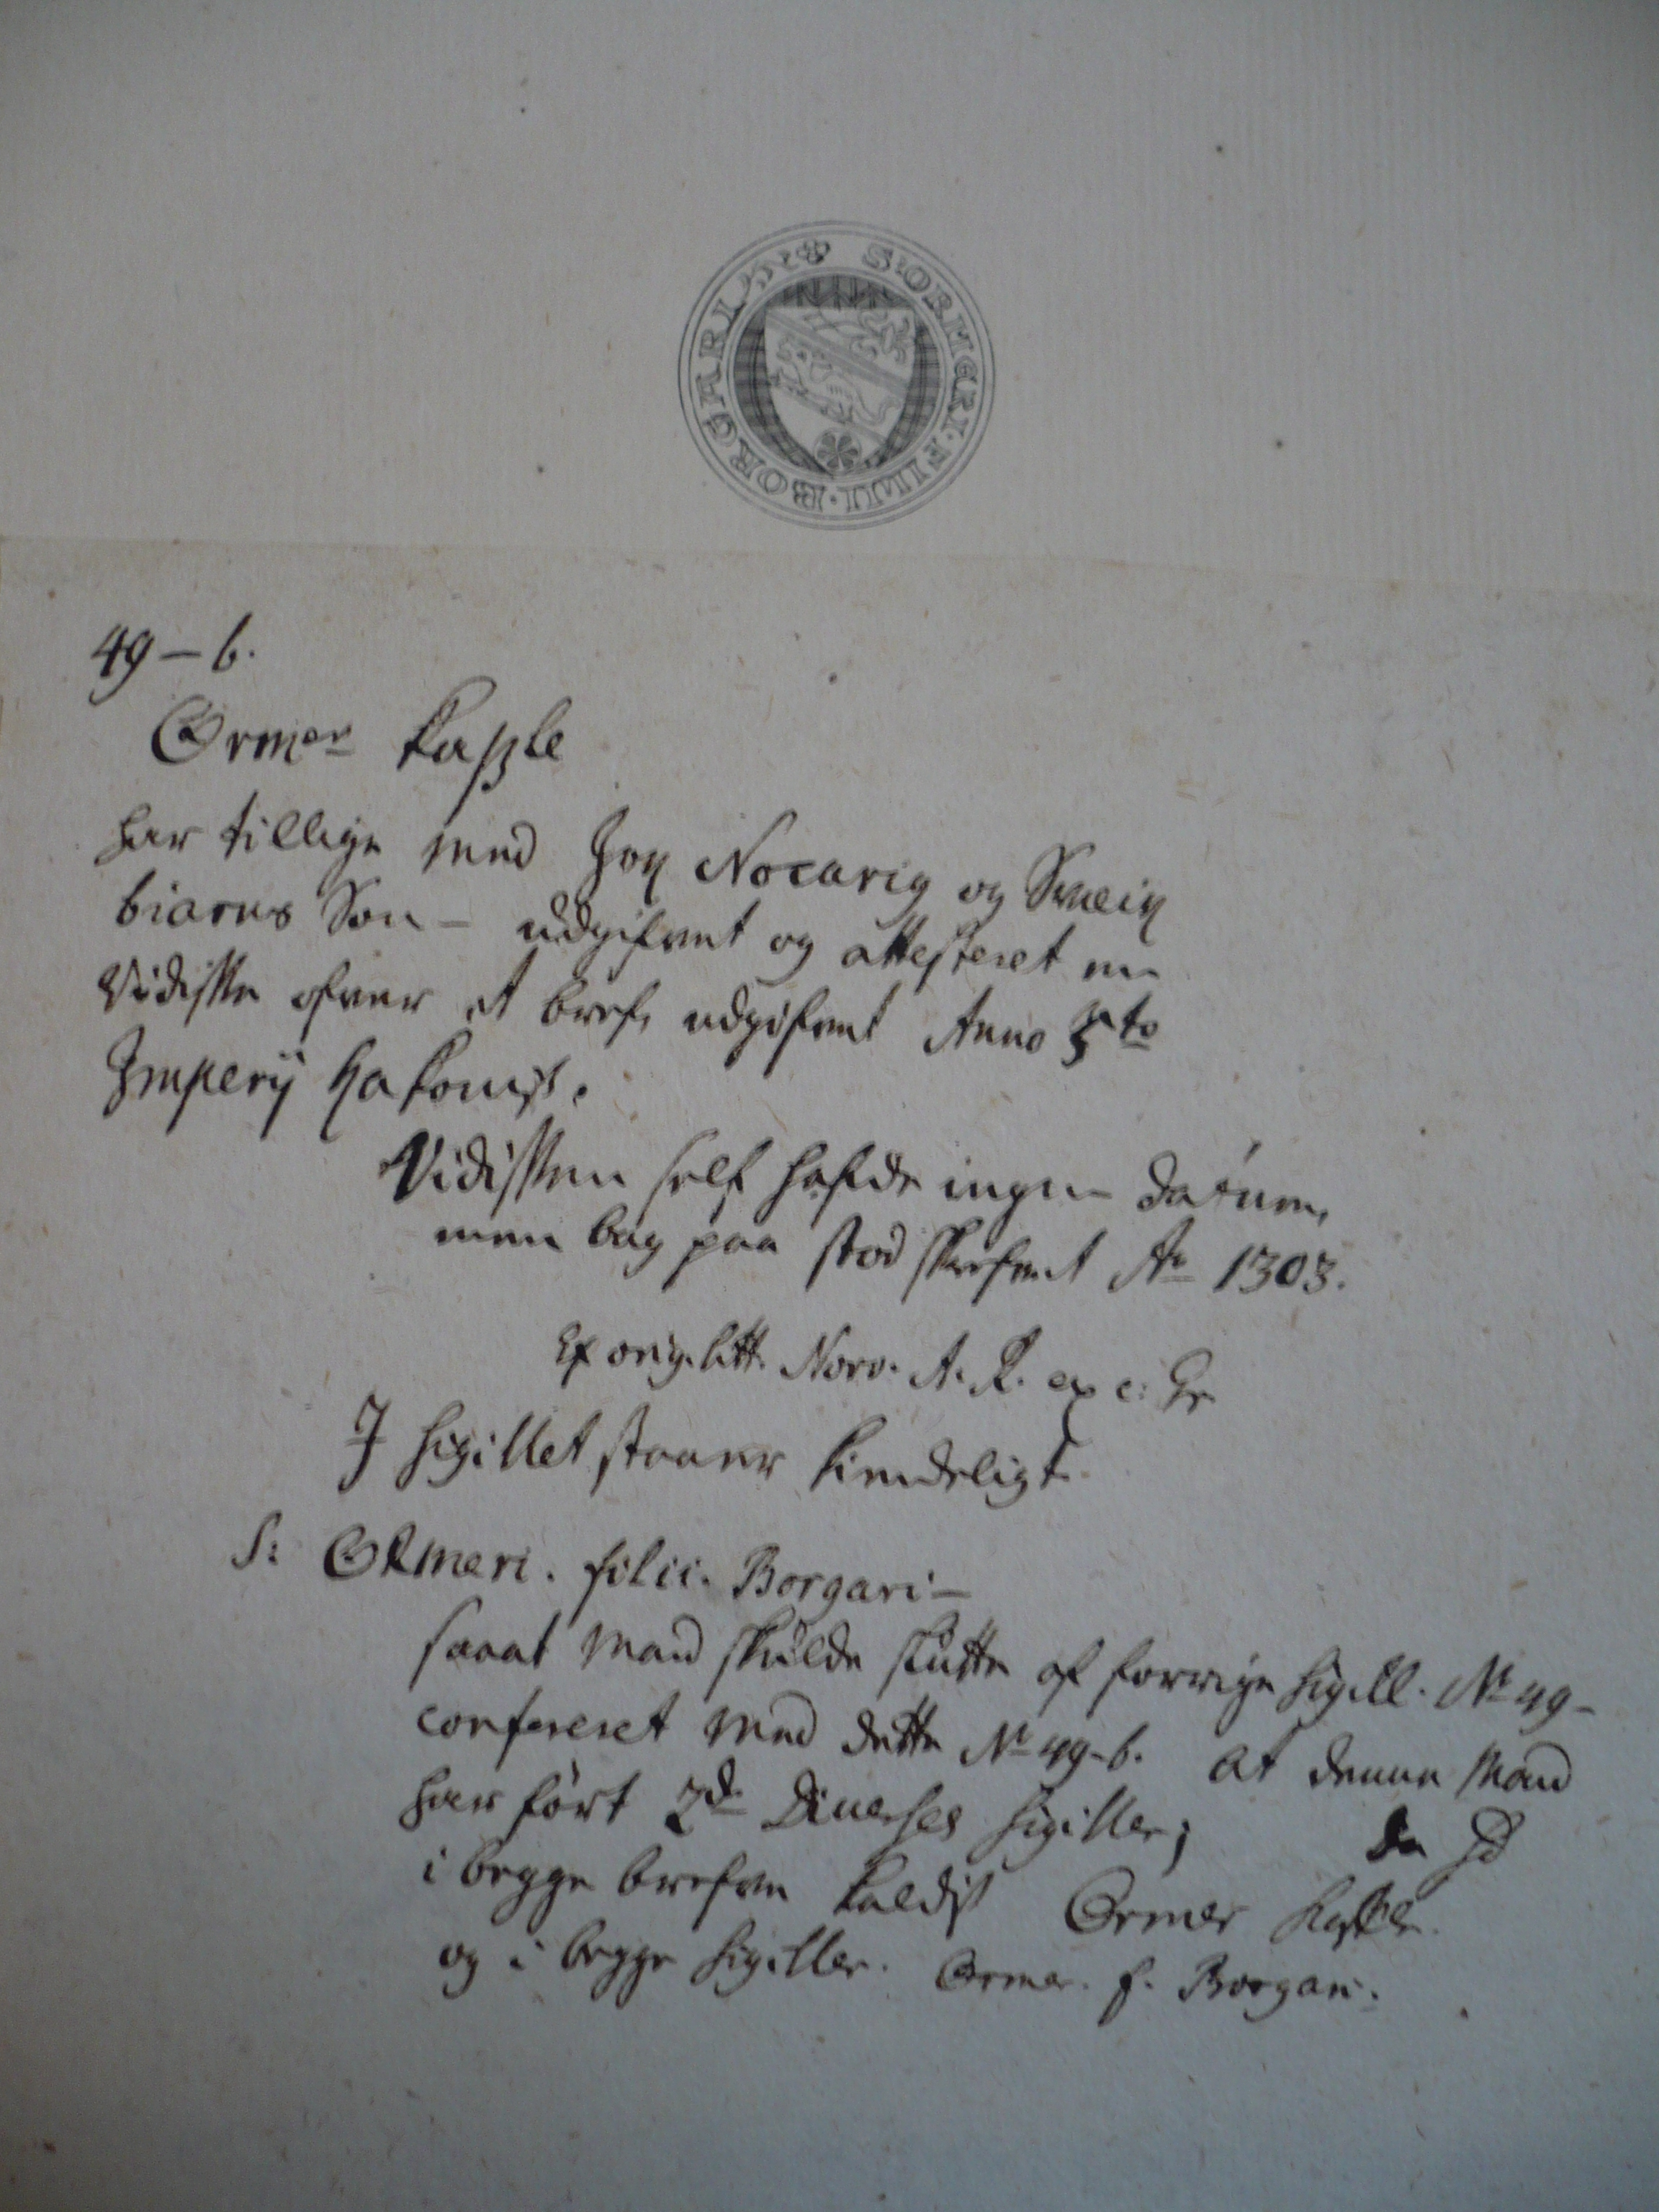 S: ORMERI · FILII · BORGARI
49-b.
Ormer kaßle
har tillige med Jon Notarig og Suein
biarns Son - udgifuet og attesteret en
Vidisse ofuer et bref, udgifuet Anno 5to
Imperij Hakonis.
Vidissen self hafde ingen datum,
men bag paa stod skrefuet Ao 1303.
Ex orig. litt. Norv. A. R. ex c:
I sigillet staaer kiendeligt
S: ORmeri. filii. Borgari -
saaat mand skulde slutte af forrige Sigill. No 49-
confereret med dette No 49-b. at denne Mand
har fört 2de Diverses sigiller;
i begge brefuen kaldis Ormer
og i begge sigiller. Ormer. f. Borgari.